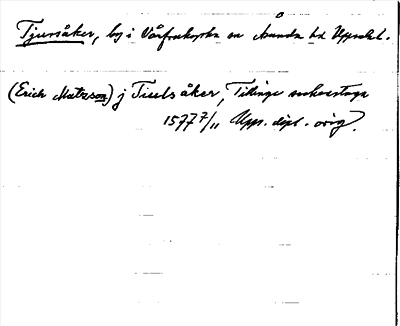 Tjursåker, by i Vårfrukyrka sn Åsunda hd Uppsala l.
(Erich Matzson) j Tiulsåker, Tillinge sochnstugu
1577 7/11 Upps. dipl. orig.